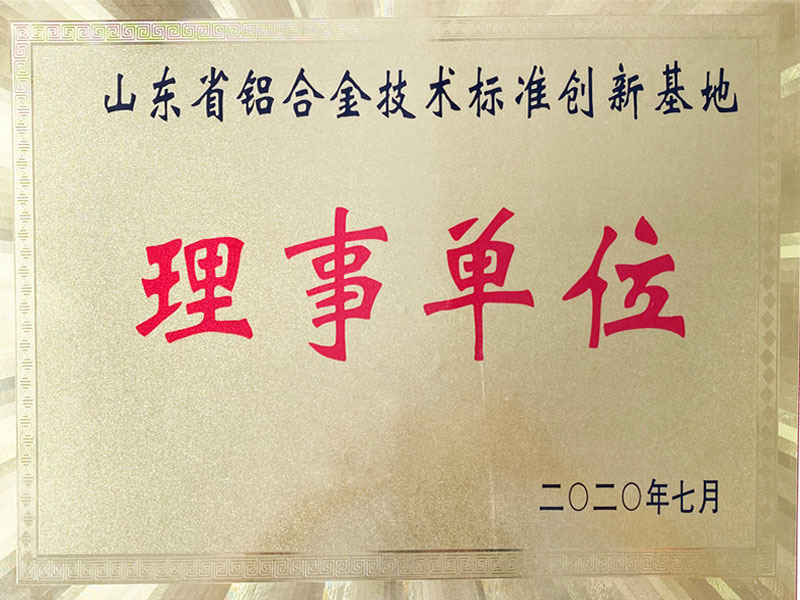 山东省铝合金技术标准创新基地
理事单位
二〇二〇年七月